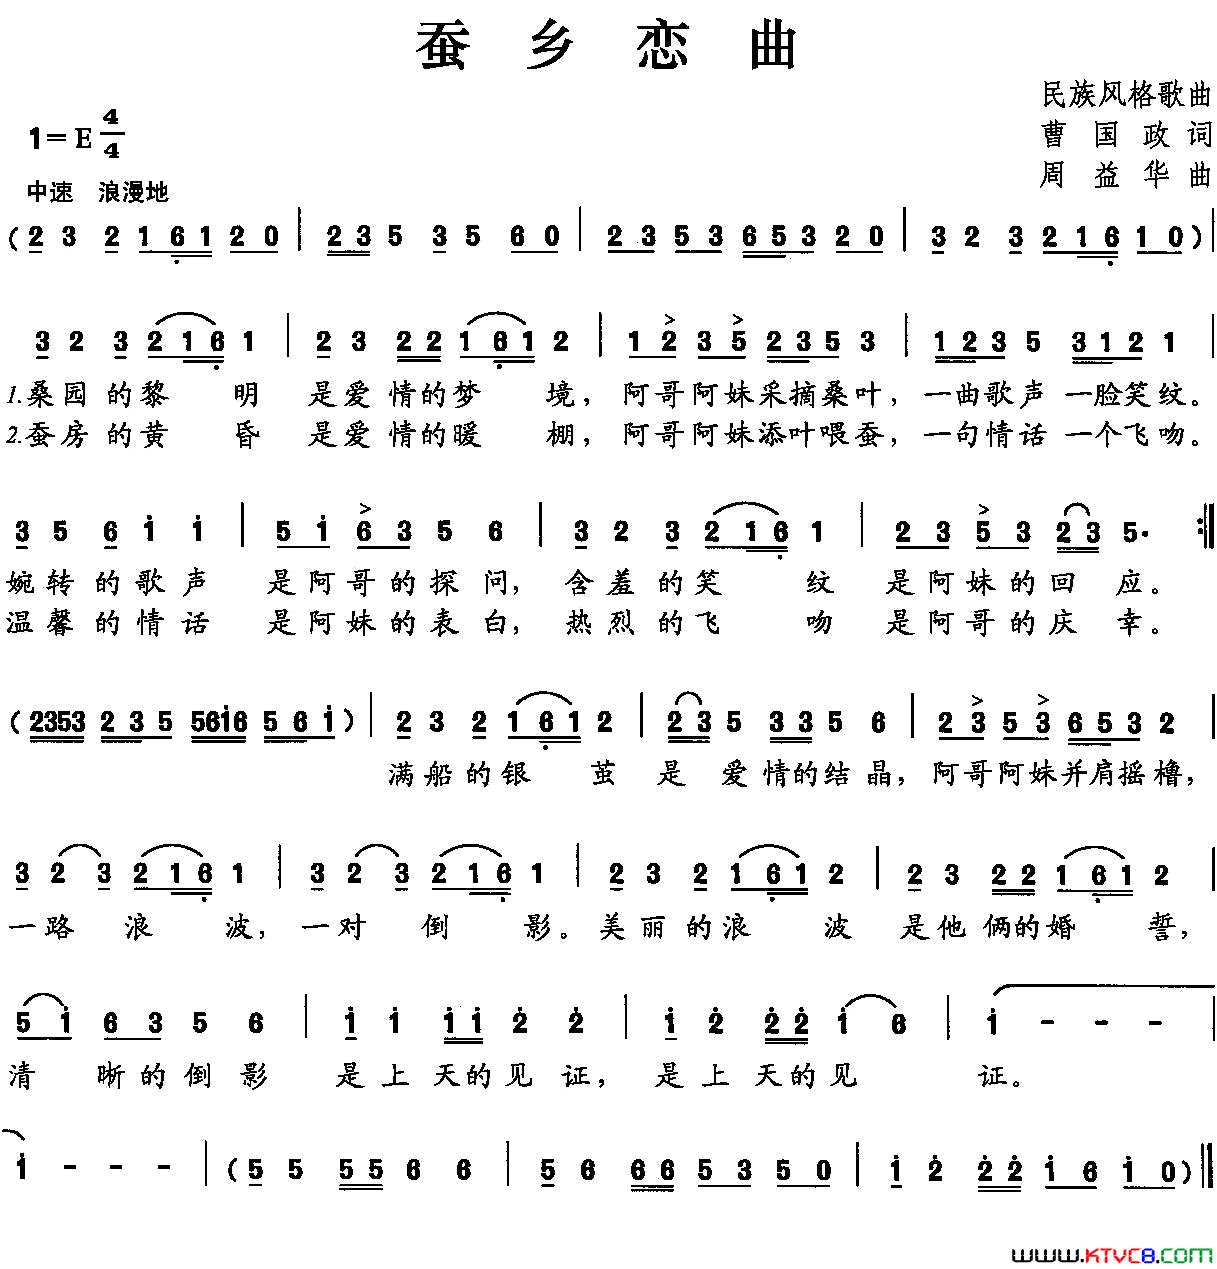 蚕乡恋曲
民族风格歌曲
1=E 4/4
曹国政词
周益华曲
中速 浪漫地
(2 3 2 161 20 | 23 5 3 5 60 | 23 53 653 20 | 3 2 3 216 10)|
3 2 3 216 1 | 2 3 22 161 2 | 1 2 3 5 235 3 | 123 5 312 1 |
1.桑园的黎 明 是爱情的梦 境，阿哥阿妹采摘桑叶，一曲歌声一脸笑纹。
2.蚕房的黄 昏 是爱情的暖 棚，阿哥阿妹添叶喂蚕，一句情话一个飞吻。
3 5 6 i i | 5 i 6 3 5 6 | 3 2 3 216 1 | 2 3 5 3 23 5· :‖
婉转的歌声 是阿哥的探问，含羞的笑 纹 是阿妹的回 应。
温馨的情话 是阿妹的表白，热烈的飞 吻 是阿哥的庆 幸。
(2353 235 56i6 56i)| 2 3 2 161 2 | 23 5 335 6 | 2 3 5 3 653 2 |
满船的银 茧 是 爱情的结晶，阿哥阿妹并肩摇橹，
3 2 3 216 1 | 3 2 3 216 1 | 2 3 2 161 2 | 2 3 22 161 2 |
一路 浪 波，一对 倒 影。美丽的浪 波 是他俩的婚 誓，
5 i 6 3 5 6 | i i i i 2 2 | i 2 2 2 i 6 | i - - - |
清 晰的倒影 是上天的见证，是上天的见 证。
i - - - | (5 5 55 6 6 | 5 6 66 53 50 | i 2 22 i6 i0)‖
www.KTVC8.com